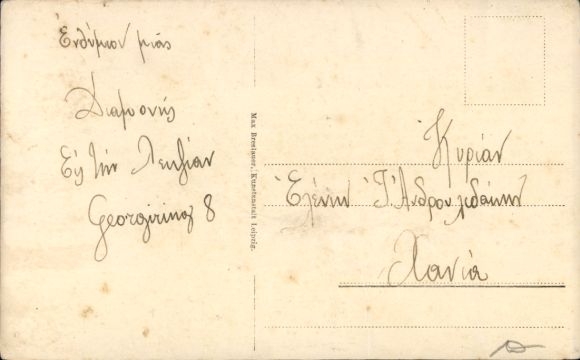 Ἐνθύμιον μιᾶς
Διαμονῆς
Εἰς τὴν Λειψίαν
Georgiring 8
Max Breslauer, Kunstanstalt Leipzig.
Κυρίαν
Ἑλένην Γ. Ἀνδρουλιδάκην
Χανία